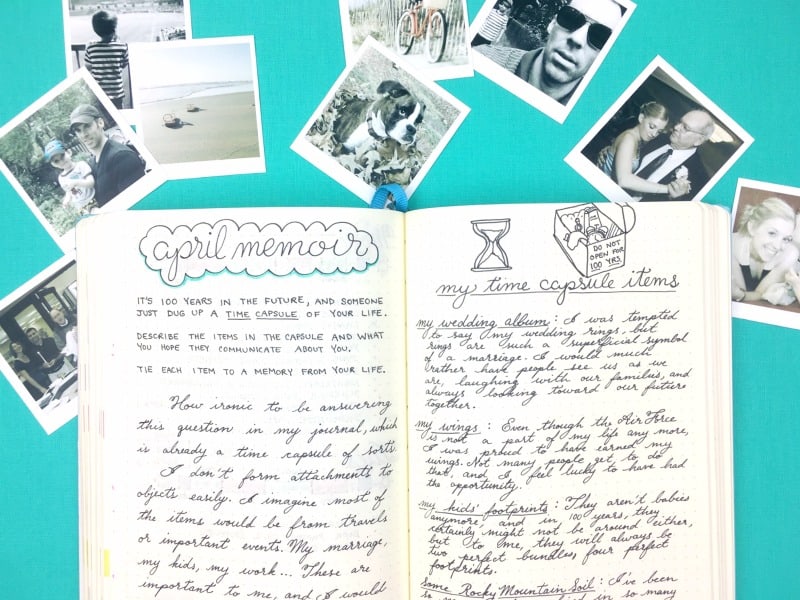 april memoir
IT'S 100 YEARS IN THE FUTURE, AND SOMEONE
JUST DUG UP A TIME CAPSULE OF YOUR LIFE.
DESCRIBE THE ITEMS IN THE CAPSULE AND WHAT
YOU HOPE THEY COMMUNICATE ABOUT YOU.
TIE EACH ITEM TO A MEMORY FROM YOUR LIFE.
How ironic to be answering
this question in my journal, which
is already a time capsule of sorts.
I don't form attachments to
objects easily. I imagine most of
the items would be from travels
or important events. My marriage,
my kids, my work... These are
important to me, and I would
DO NOT
OPEN FOR
100 YRS.
my time capsule items
my wedding album: I was tempted
to say my wedding rings, but
rings are such a superficial symbol
of a marriage. I would much
rather have people see us as we
are, laughing with our families, and
always looking toward our future
together.
my wings: Even though the Air Force
is not a part of my life any more,
I was proud to have earned my
wings. Not many people get to do
that, and I feel lucky to have had
the opportunity.
my kids' footprints: They aren't babies
anymore, and in 100 years, they
certainly might not be around either,
but to me, they will always be
two perfect bundles, four perfect
footprints.
Some Rocky Mountain Soil: I've been
so many